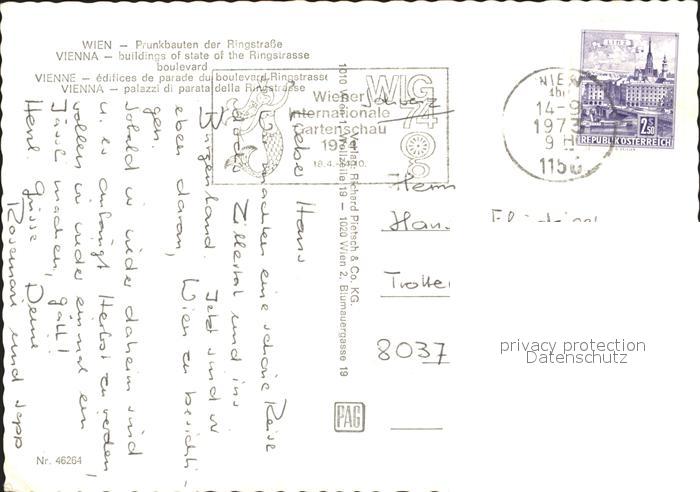 WIEN – Prunkbauten der Ringstraße
VIENNA – buildings of state of the Ringstrasse
boulevard
VIENNE – édifices de parade du boulevard Ringstrasse
VIENNA – palazzi di parata della Ringstrasse
Wiener
Internationale
Gartenschau
1974
18.4.-14.10.
WIG
74
LINZ
2.50
REPUBLIK ÖSTERREICH
WIEN
14-9
1973
1150
Schweiz
Lieber Hans
Wir machten eine schöne Reise
durchs Zillertal und ins
Burgenland. Jetzt sind wir
eben daran, Wien zu besichti-
gen.
Sobald wir wieder daheim sind
u. es anfängt Herbst zu werden,
wollen wir wieder einmal ein
Jässli machen, gäll!
Herzl. Grüsse Deine
Rosemarie und Sepp
Verlag Richard Pietsch & Co. KG.
1020 Wien 2, Blumauergasse 19
Herrn
Han
8037
PAG
Nr. 46264
privacy protection
Datenschutz